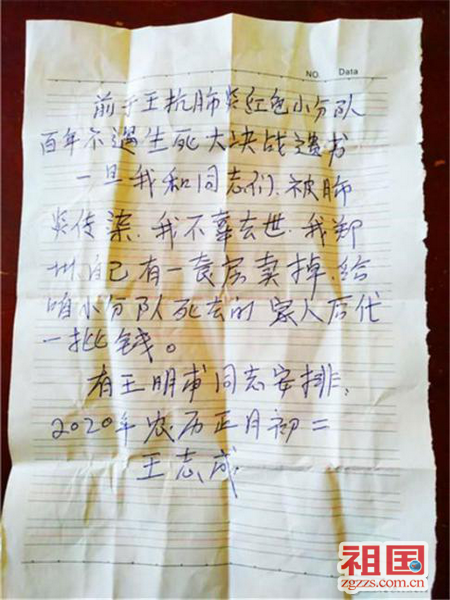 NO. Data
前于王抗肺炎红色小分队
百年不遇生死大决战遗书
一旦我和同志们被肺
炎传染.我不幸去世.我郑
州自己有一套房卖掉.给
咱小分队死去的家人后代
一批钱。
有王明甫同志安排,
2020年农历正月初二
王志成
祖国
zgzzs.com.cn